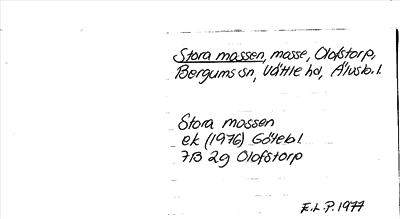 Stora mossen, mosse, Olofstorp,
Bergums sn, Vättle hd, Älvsb. l.
Stora mossen
ek (1976) Göteb l.
7B 2g Olofstorp
E.L.P. 1977